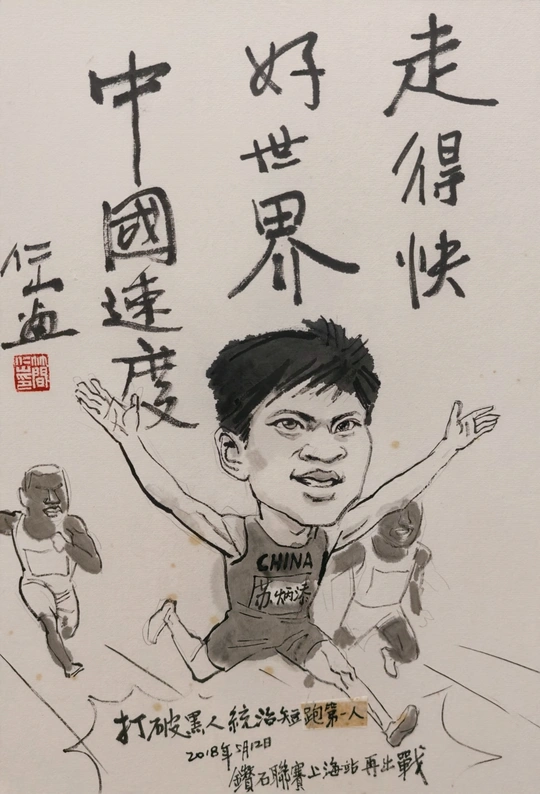 走得快
好世界
中國速度
仁山画
CHINA
苏炳添
打破黑人統治短跑第一人
2018年5月12日
鑽石聯賽上海站再出戰